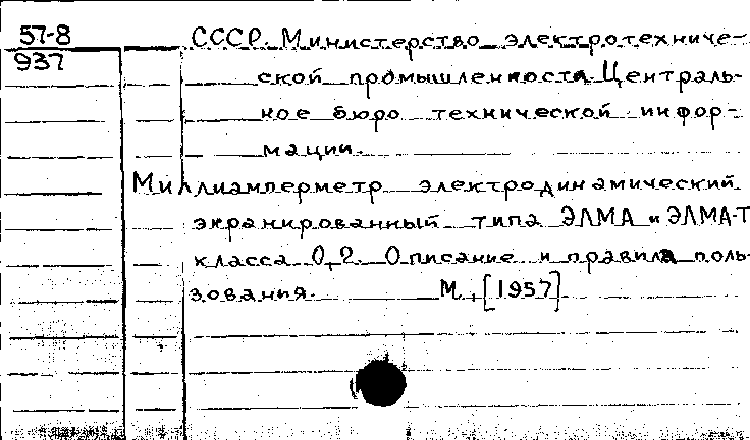 57-8
937
СССР. Министерство электротехниче-
ской промышленности. Централь-
ное бюро технической инфор-
мации.
Миллиамперметр электродинамический
экранированный типа ЭЛМА и ЭЛМА-Т
класса 0,2. Описание и правила поль-
зования. М., [1957]